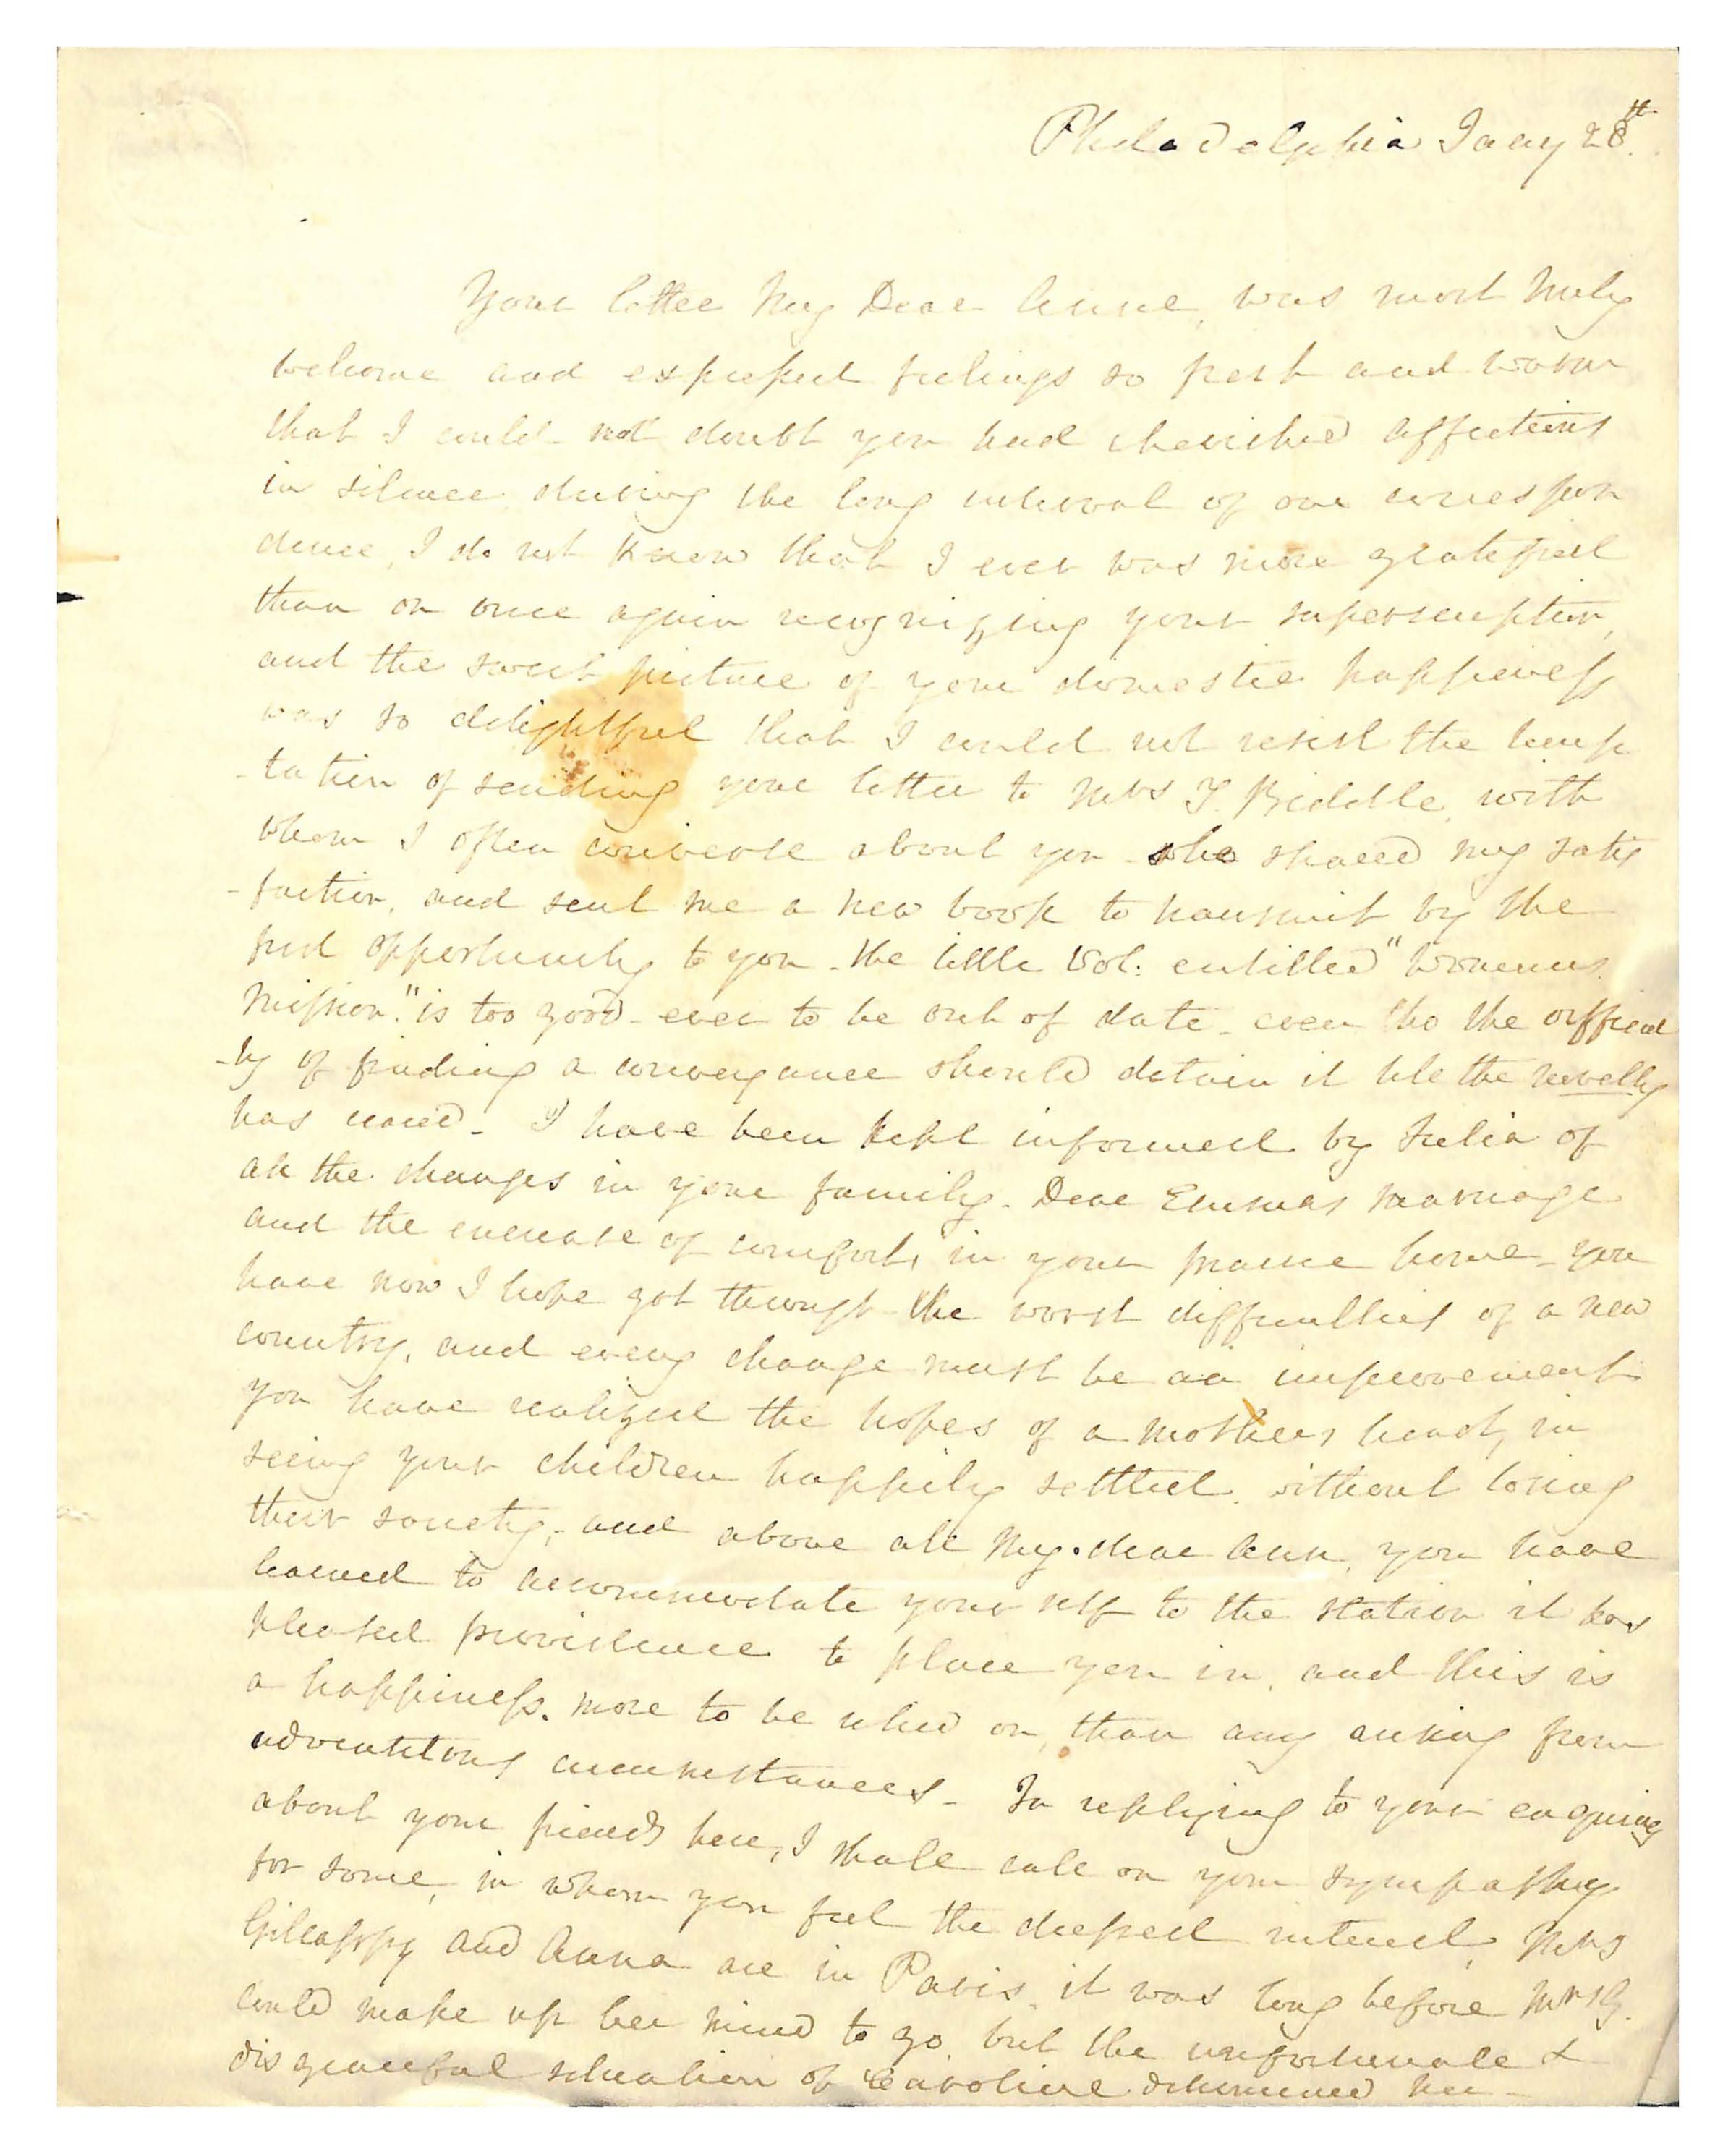 Philadelphia Jaay 28th.
Your letter My Dear Anne, was most truly
welcome and expressed feelings so fresh and warm
that I could not doubt you had cherished affections
in silence during the long interval of our correspon
dence, I do not know that I ever was more grateful
than on once again recognizing your superscription,
and the sweet picture of your domestic happiness
was so delightful that I could not resist the temp
-tation of sending your letter to Mrs T. Biddle, with
whom I often converse about you - she shared my satis
-faction, and sent me a new book to transmit by the
first opportunity to you - the little Vol: entitled "Womens
Mission." is too good ever to be out of date - even tho the difficul
-ty of finding a conveyance should detain it till the novelty
has . I have been kept informed by Julia of
all the changes in your family. Dear Emmas marriage
and the increase of comforts in your prairie home - you
have now I hope got through the worst difficulties of a new
country, and every change must be an improvement
you have realized the hopes of a mothers heart, in
seeing your children happily settled, without losing
their society, and above all My dear Ann, you have
learned to accommodate your self to the station it has
pleased providence to place you in, and this is
a happiness. more to be relied on, than any arising from
adventitous circumstances - In replying to your enquiry
about your friends here, I shall call on your sympathy
for some, in whom you feel the deepest interest, Mrs
Gillasspy and Anna are in Paris, it was long before Mrs G.
could make up her mind to go, but the unfortunate &
disgraceful situation of Caroline determined her -